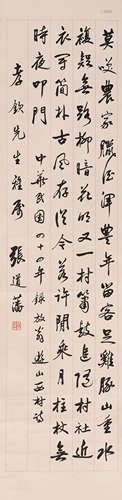 莫咲農家臘酒渾豐年留客足雞豚山重水
複疑無路柳暗花明又一村簫鼓追隨村社近
衣冠簡朴古風存從今若許閒乘月拄杖無
時夜叩門
中華民國四十四年錄放翁遊山西村詩
孝欽先生雅屬
張道藩